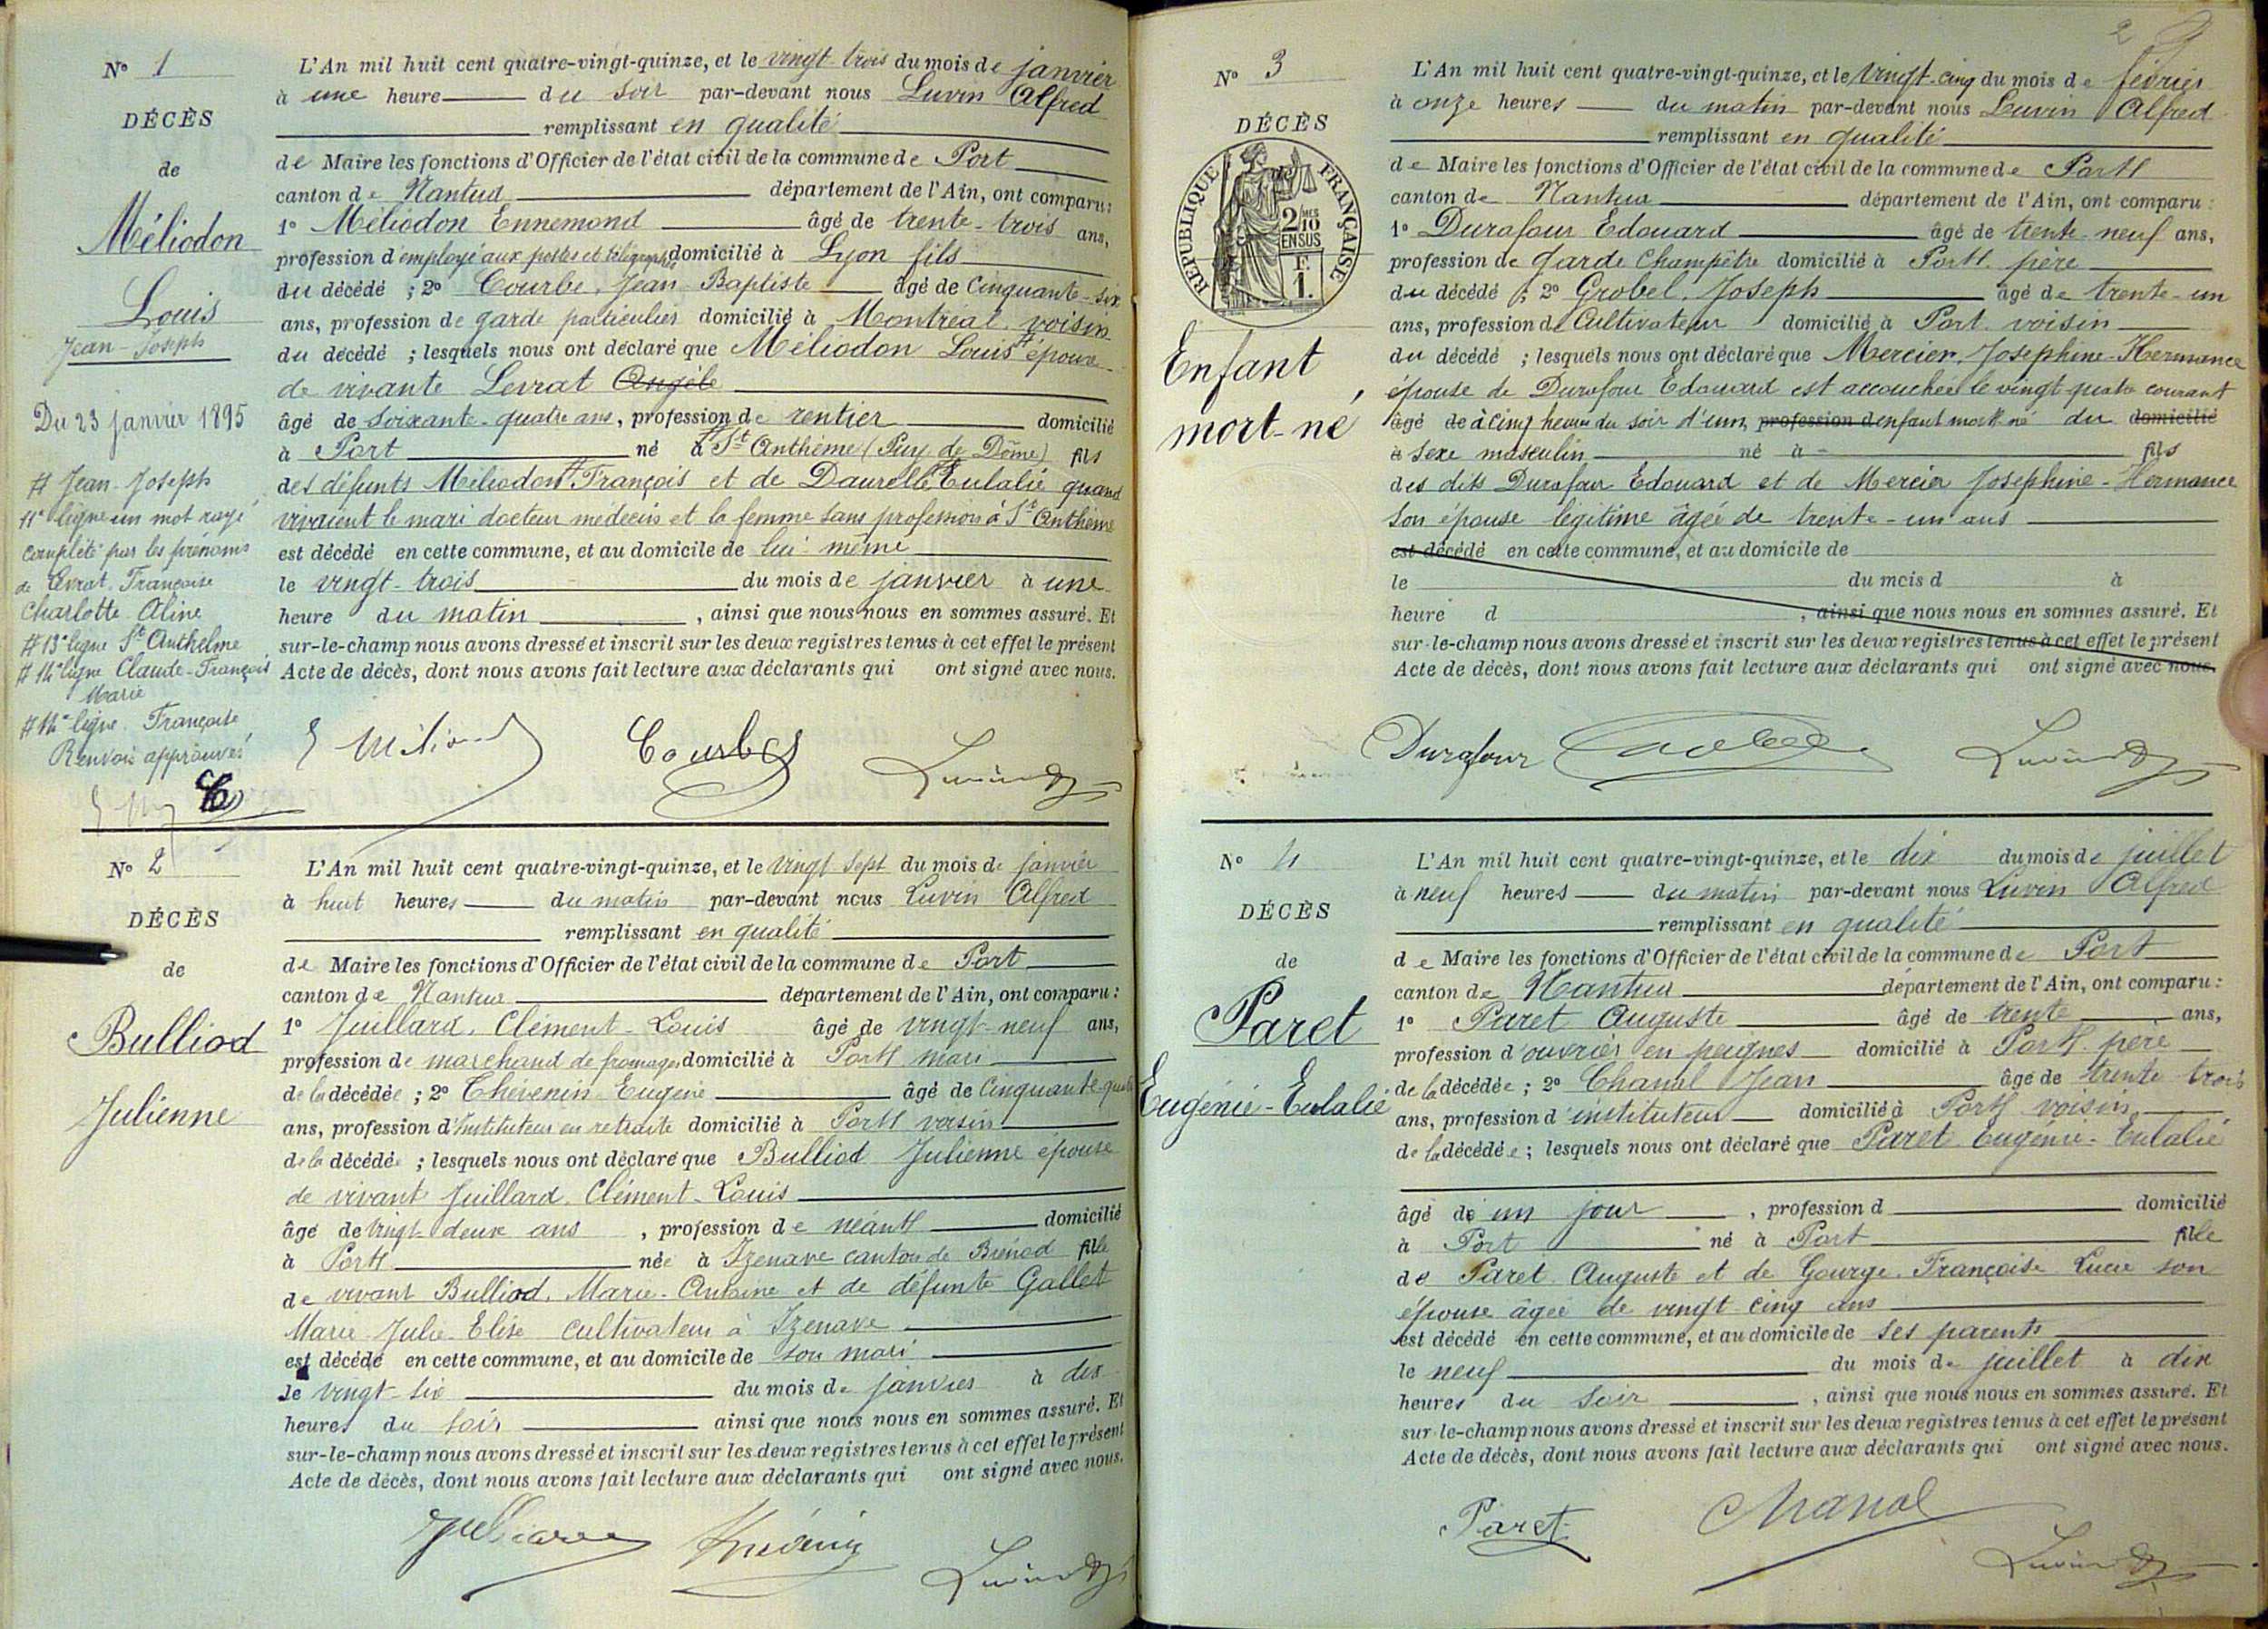 Nº 1
DÉCÈS
de
Méliodon
Louis
Jean-Joseph
Du 23 janvier 1895
# Jean-Joseph
11e ligne un mot rayé
complété par les prénoms
de Levrat Françoise
Charlotte Aline
# 13e ligne St Anthelme
# 14e ligne Claude-François
Marie
# 14e ligne Françoise
Renvois approuvés
L'An mil huit cent quatre-vingt-quinze, et le vingt trois du mois de janvier
à une heure du soir par-devant nous Luvin Alfred
remplissant en qualité
de Maire les fonctions d'Officier de l'état civil de la commune de Port
canton de Nantua département de l'Ain, ont comparu:
1º Méliodon Ennemond âgé de trente-trois ans,
profession d'employé aux postes et télégraphes domicilié à Lyon fils
du décédé ; 2º Courbe, Jean-Baptiste âgé de cinquante-six
ans, profession de garde particulier domicilié à Montréal voisin
du décédé ; lesquels nous ont déclaré que Méliodon Louis # époux
de vivante Levrat Angèle
âgé de soixante-quatre ans, profession de rentier domicilié
à Port né à # St Anthème (Puy de Dôme) fils
des défunts Méliodon # François et de Daurelle # Eulalie quand
vivaient le mari docteur médecin et la femme sans profession à St Anthème
est décédé en cette commune, et au domicile de lui-même
le vingt-trois du mois de janvier à une
heure du matin , ainsi que nous nous en sommes assuré. Et
sur-le-champ nous avons dressé et inscrit sur les deux registres tenus à cet effet le présent
Acte de décès, dont nous avons fait lecture aux déclarants qui ont signé avec nous.
Courbe Luvin
Nº 2
DÉCÈS
de
Bulliod
Julienne
L'An mil huit cent quatre-vingt-quinze, et le vingt sept du mois de janvier
à huit heures du matin par-devant nous Luvin Alfred
remplissant en qualité
de Maire les fonctions d'Officier de l'état civil de la commune de Port
canton de Nantua département de l'Ain, ont comparu:
1º Juillard, Clément-Louis âgé de vingt-neuf ans,
profession de marchand de fromages domicilié à Port mari
de la décédée ; 2º Thévenin Eugène âgé de cinquante-quatre
ans, profession d'instituteur en retraite domicilié à Port voisin
de la décédée ; lesquels nous ont déclaré que Bulliod Julienne épouse
de vivant Juillard, Clément-Louis
âgé de vingt-deux ans , profession de néant domicilié
à Port née à Izenave canton de Brénod fille
de vivant Bulliod, Marie-Antoine et de défunte Gallet
Marie-Julie-Elise cultivateur à Izenave
est décédé en cette commune, et au domicile de son mari
le vingt-six du mois de janvier à dix
heures du soir ainsi que nous nous en sommes assuré. Et
sur-le-champ nous avons dressé et inscrit sur les deux registres tenus à cet effet le présent
Acte de décès, dont nous avons fait lecture aux déclarants qui ont signé avec nous.
Juillard Thévenin Luvin
2
Nº 3
DÉCÈS
de
RÉPUBLIQUE FRANÇAISE
2/10 MES
EN SUS
F.
1.
Enfant
mort-né
L'An mil huit cent quatre-vingt-quinze, et le vingt-cinq du mois de février
à onze heures du matin par-devant nous Luvin Alfred
remplissant en qualité
de Maire les fonctions d'Officier de l'état civil de la commune de Port
canton de Nantua département de l'Ain, ont comparu:
1º Durafour Edouard âgé de trente-neuf ans,
profession de garde champêtre domicilié à Port père
du décédé ; 2º Grobel, Joseph âgé de trente-un
ans, profession de cultivateur domicilié à Port voisin
du décédé ; lesquels nous ont déclaré que Mercier, Josephine-Hermance
épouse de Durafour Edouard est accouchée le vingt quatre courant
âgé de à cinq heures du soir d'un profession d enfant mort né du domicilié
à sexe masculin né à fils
des dits Durafour Edouard et de Mercier Joséphine-Hermance
son épouse légitime âgée de trente-un ans
est décédé en cette commune, et au domicile de
le du mois d à
heure d , ainsi que nous nous en sommes assuré. Et
sur-le-champ nous avons dressé et inscrit sur les deux registres tenus à cet effet le présent
Acte de décès, dont nous avons fait lecture aux déclarants qui ont signé avec nous.
Durafour Luvin
Nº 4
DÉCÈS
de
Paret
Eugénie-Eulalie
L'An mil huit cent quatre-vingt-quinze, et le dix du mois de juillet
à neuf heures du matin par-devant nous Luvin Alfred
remplissant en qualité
de Maire les fonctions d'Officier de l'état civil de la commune de Port
canton de Nantua département de l'Ain, ont comparu:
1º Paret Auguste âgé de trente ans,
profession d'ouvrier en peignes domicilié à Port père
de la décédée ; 2º Chanal Jean âgé de trente trois
ans, profession d'instituteur domicilié à Port voisin
de la décédée ; lesquels nous ont déclaré que Paret Eugénie-Eulalie
âgé de un jour , profession d domicilié
à Port né à Port fille
de Paret Auguste et de Gourge, Françoise Lucie son
épouse âgée de vingt-cinq ans
est décédé en cette commune, et au domicile de ses parents
le neuf du mois de juillet à dix
heures du soir , ainsi que nous nous en sommes assuré. Et
sur-le-champ nous avons dressé et inscrit sur les deux registres tenus à cet effet le présent
Acte de décès, dont nous avons fait lecture aux déclarants qui ont signé avec nous.
Paret Chanal Luvin